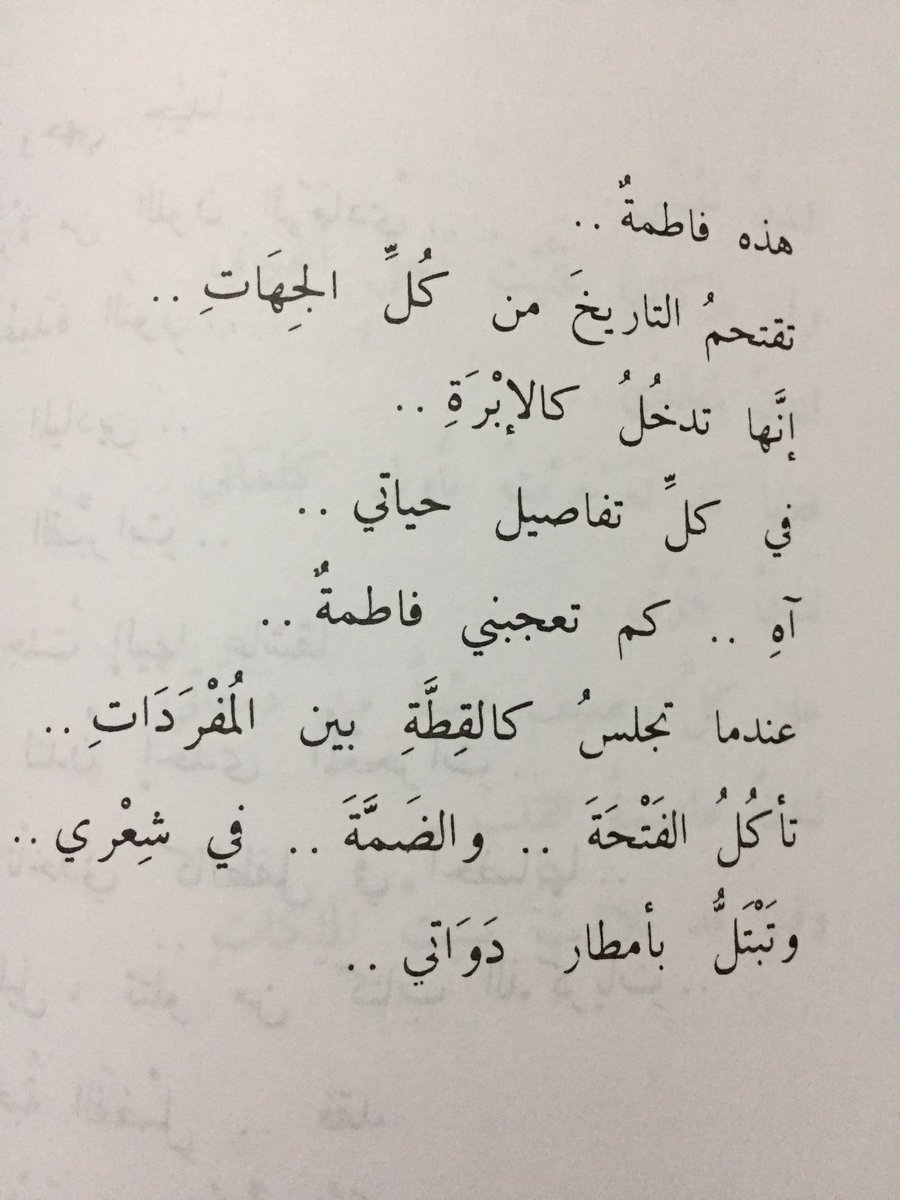 هذه فاطمةٌ ..
تقتحمُ التاريخَ من كُلِّ الجِهَاتِ ..
إنَّها تدخُلُ كالإبْرَةِ ..
في كلِّ تفاصيل حياتي ..
آهِ .. كم تعجبني فاطمةٌ ..
عندما تجلسُ كالقِطَّةِ بين المُفْرَدَاتِ ..
تأكُلُ الفَتْحَةَ .. والضَمَّةَ .. في شِعْري ..
وتَبْتَلُّ بأمطار دَوَاتي ..